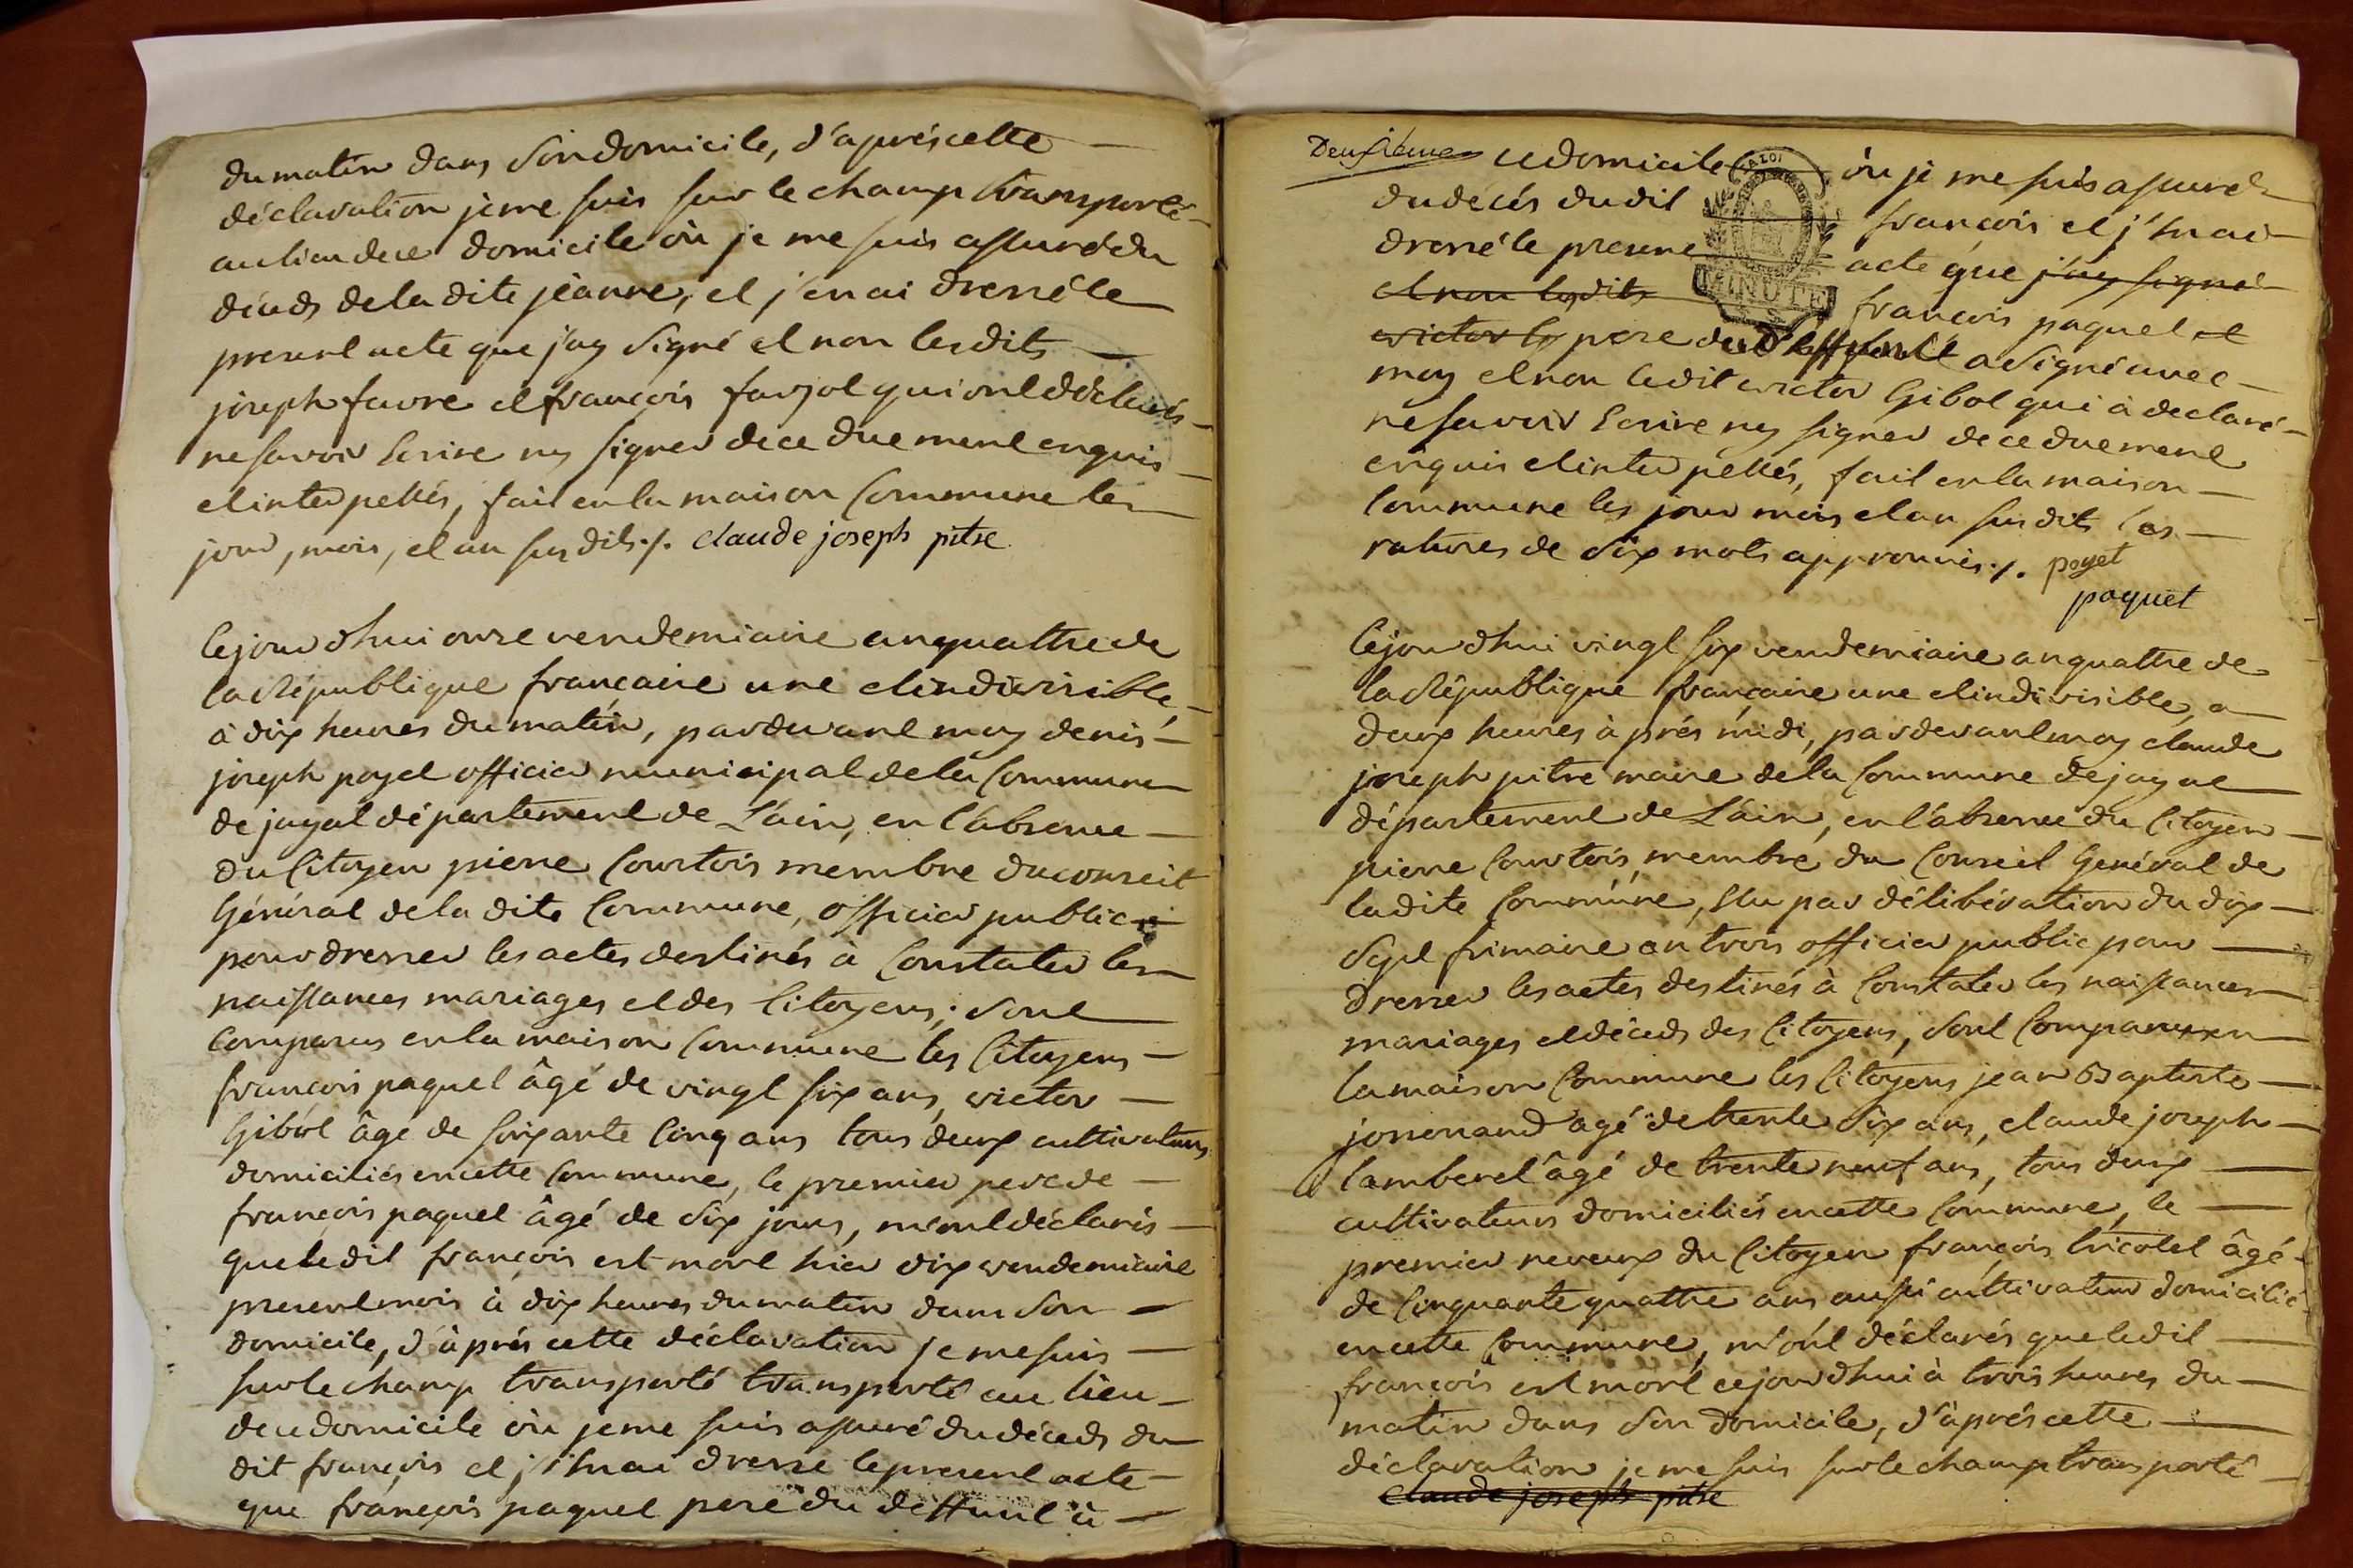 du matin dans son domicile, d'aprés cette
déclaration je me suis sur le champ transporté
au lieu de ce domicile où je me suis assuré du
décèds de la dite jeanne, et j'en ai dressé le
present acte que j'ay signé et non lesdits
joseph favre et françois farjot qui ont déclarés
ne savoir Ecrire ny signer de ce duement enquis
et interpellés, fait en la maison Commune les
jour, mois, et an susdits ./. claude joseph pitre
Cejourd'hui onze vendemiaire an quattre de
la République françaine une et indivisible,
à dix heures du matin, pardevant moy denis
joseph poyet officier municipal de la Commune
de jayat département de L'ain, en l'absence
du Citoyen pierre Courtois membre du conseil
Général de la dite Commune, officier public
pour dresser les actes destinés à Constater les
naissances mariages et des Citoyens; sont
Comparus en la maison Commune les Citoyens
françois paquet âgé de vingt six ans, victor
Gibot âge de soixante Cinq ans tous deux cultivateurs
domiciliés en cette Commune, le premier pere de
françois paquet âgé de six jours, m'ont déclarés
que ledit françois est mort hier dix vendemiaire
present mois à dix heures du matin dans son
domicile, d'àprés cette déclaration je me suis
sur le champ transporté transporté au lieu
de ce domicile où je me suis assuré du décèds du
dit françois et j'en ai dressé le present acte
que françois paquet pere du deffunt à
Deuxiéme ce domicile où je me suis assuré
LA LOI
du décés dudit françois et j'en ai
dressé le presene acte que j'ay signé
MINUTE
et non lesdits françois paquet et
victor G pere du deffunt a signé avec
moy et non ledit victor Gibot qui à declaré
ne savoir Ecrire ny signer de ce duement
enquis et interpellés, fait en la maison
Commune les jour mois et an susdits les
ratures de six mots approuvés ./. poyet
paquet
Cejourd'hui vingt six vendemiaire an quattre de
la République françaine une et indivisible, a
deux heures à prés midi, pardevant moy claude
joseph pitre maire de la Commune de jayat
département de L'ain, en l'absence du Citoyen
pierre Courtois membre du Conseil Genéral de
ladite Commune, Elu par délibération du dix
sept frimaire an trois officier public pour
dresser les actes destinés à Constater les naissances
mariages et décèds des Citoyens, sont Comparus en
la maison Commune les Citoyens jean Baptiste
agé de trente six ans, claude joseph
Camberet âgé de trente neuf ans, tous deux
cultivateurs domiciliés en cette Commune, le
premier neveux du Citoyen françois tricotet âgé
de Cinquante quattre ans aussi cultivateur domicilié
en cette Commune, m'ont déclarés que ledit
françois est mort cejourd'hui à trois heures du
matin dans son domicile, d'àprés cette
déclaration je me suis sur le champ transporté
claude joseph pitre